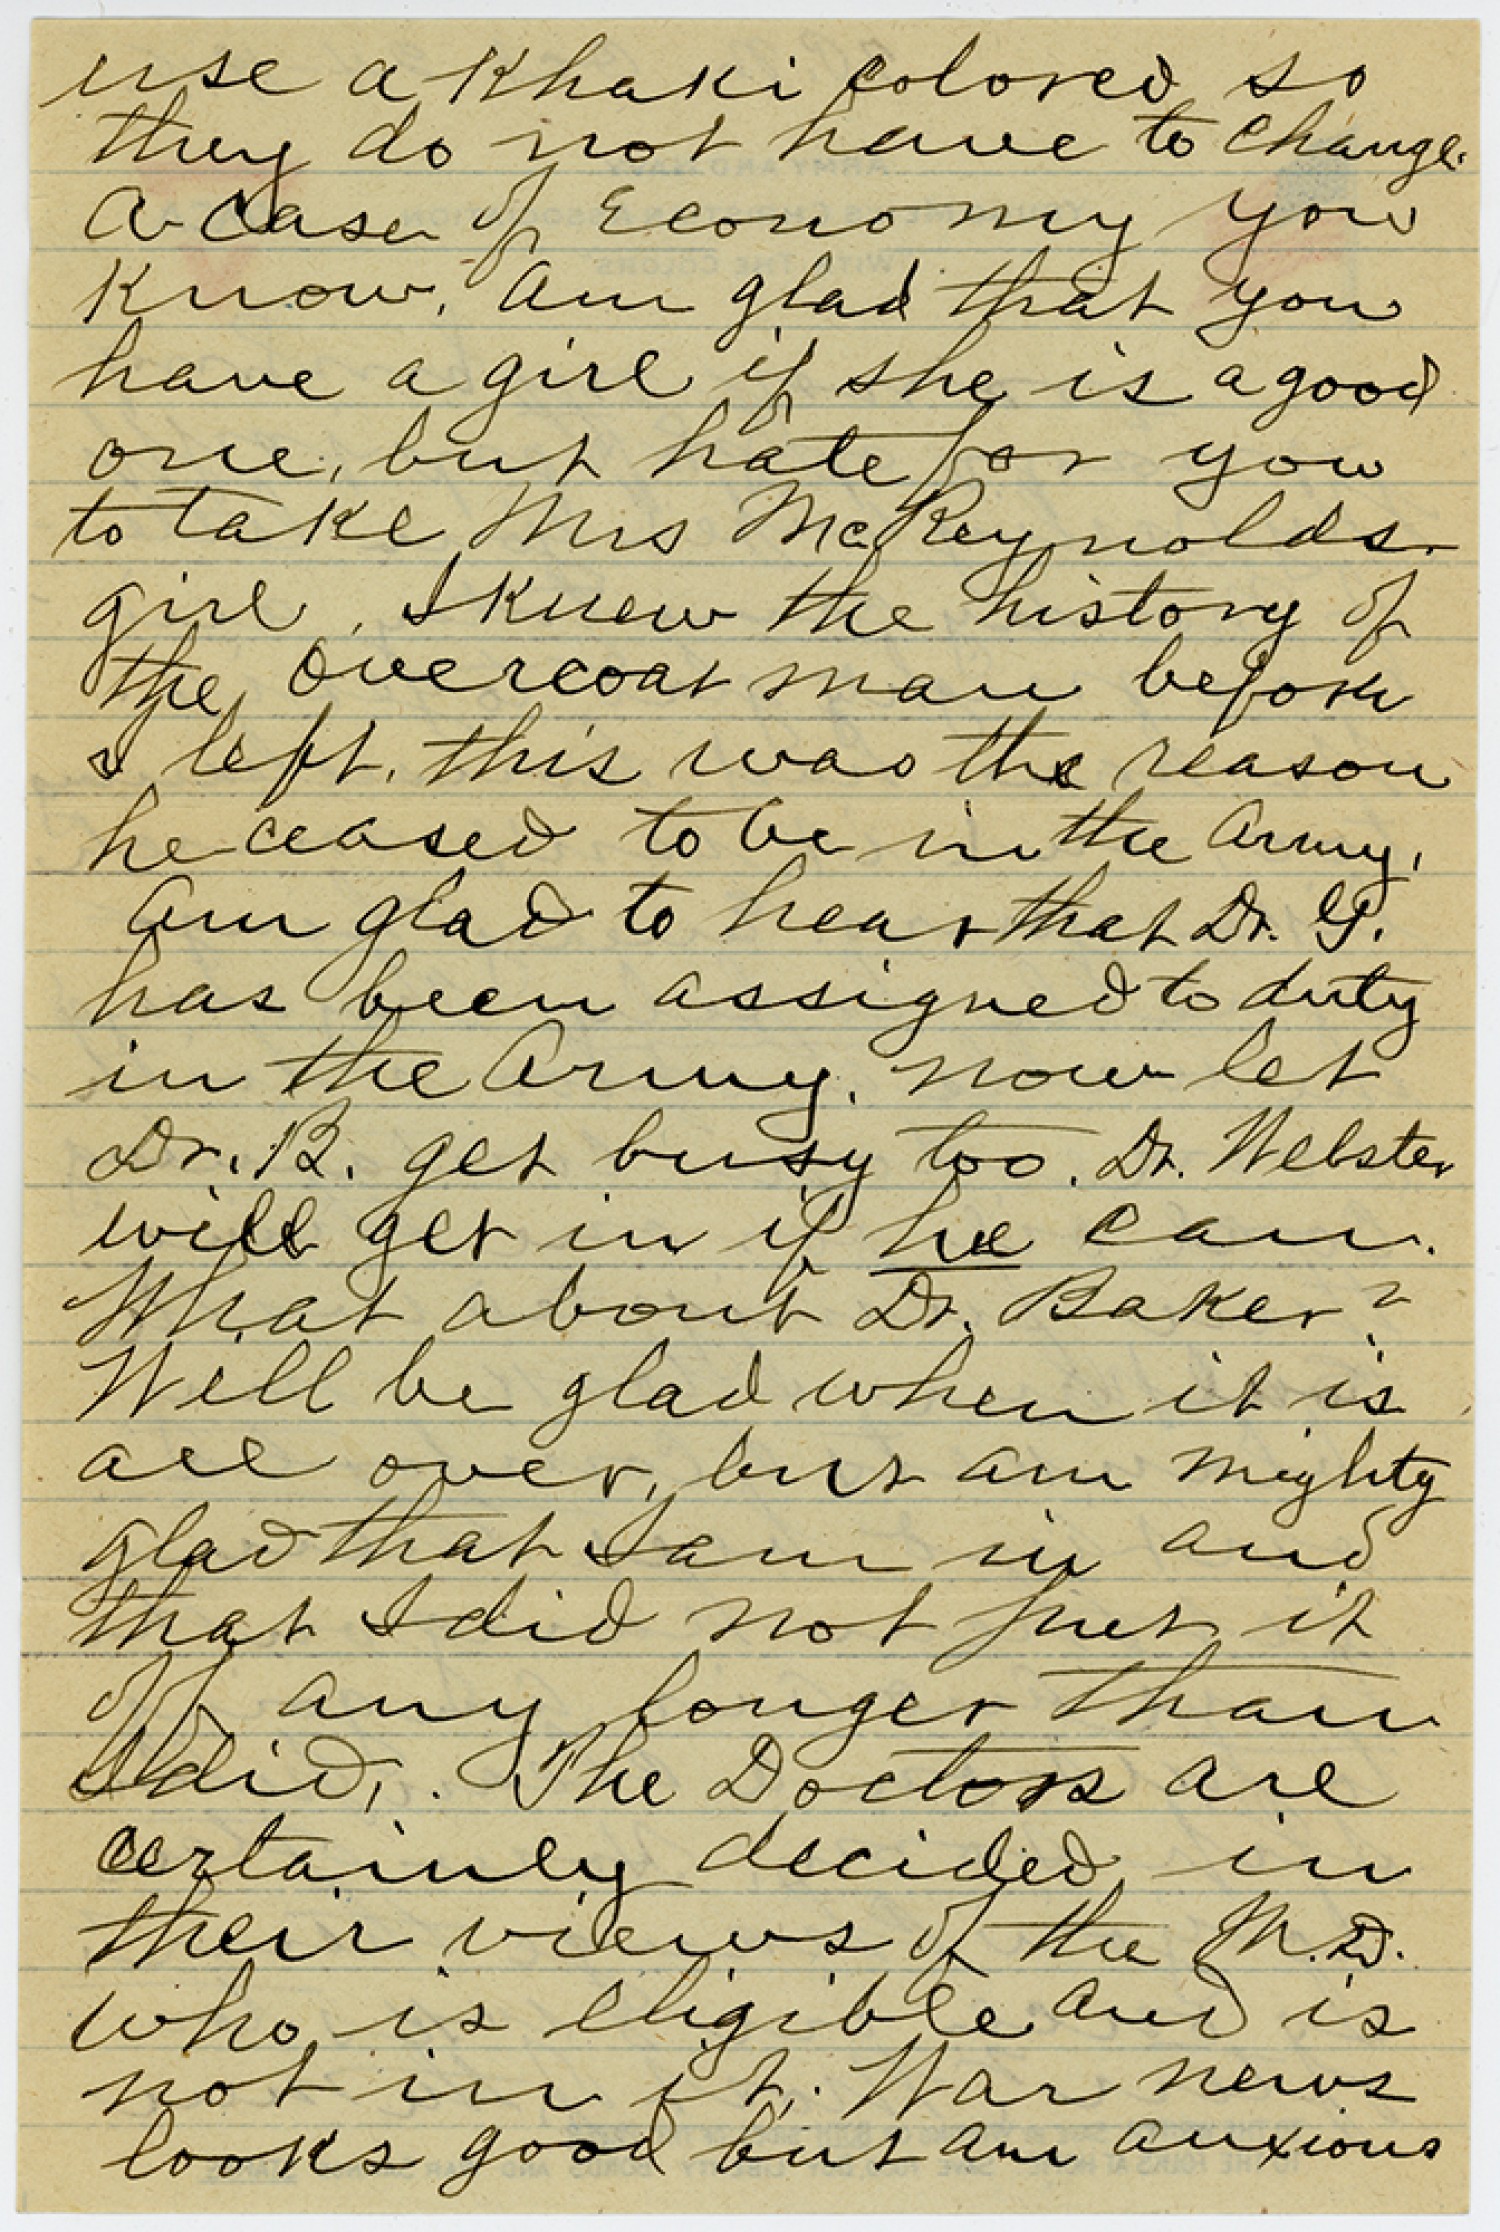 use a Khaki colored so
they do not have to change.
A case of Economy you
know. Am glad that you
have a girl if she is a good
one, but hate for you
to take Mrs McReynolds
girl. I knew the history of
the overcoat man before
I left, this was the reason
he ceased to be in the Army.
Am glad to hear that Dr. G.
has been assigned to duty
in the Army. now let
Dr. B. get busy too. Dr. Webster
will get in if he can.
What about Dr. Baker?
Will be glad when it is
all over, but am mighty
glad that I am in and
that I did not put it
off any longer than
I did. The Doctors are
certainly decided in
their views of the M.D.
who is eligible and is
not in it. War news
looks good but am anxious